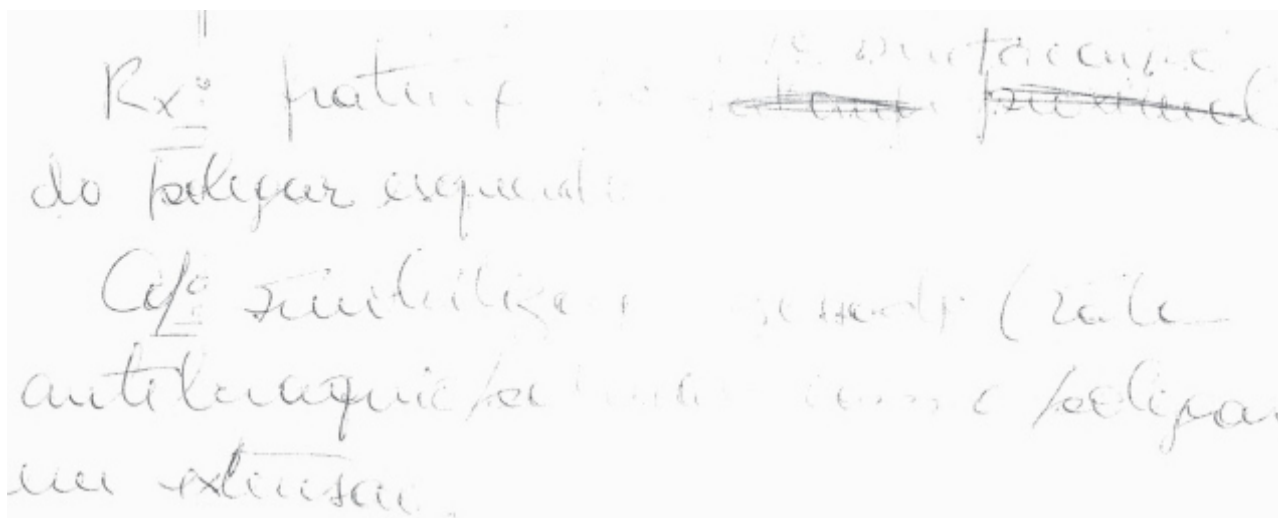 Rx: fratura do 1º metacarpo
do polegar esquerdo
Cd: imobilização gessada (tala
antibraquiopalmar com o polegar
em extensão.